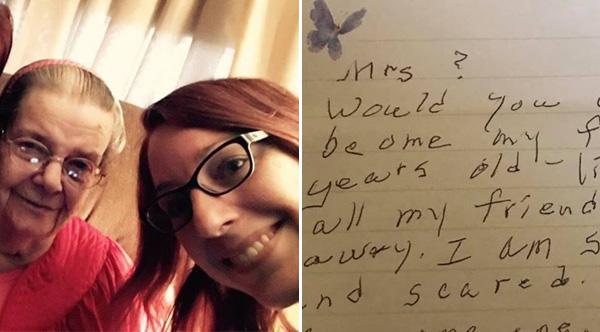 Mrs ?
Would you
be ome my f
years old - li
all my friend
away. I am s
nd scared.